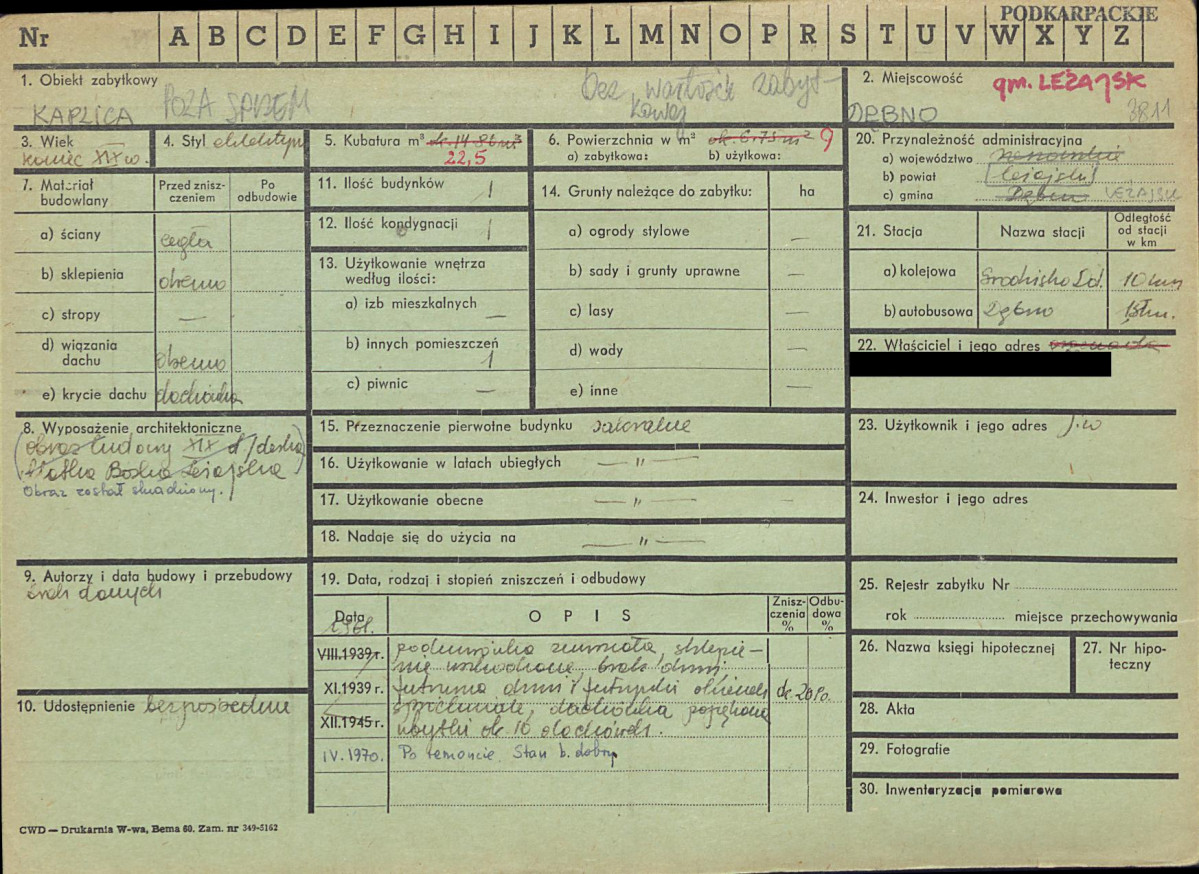 PODKARPACKIE
Nr A B C D E F G H I J K L M N O P R S T U V W X Y Z
1. Obiekt zabytkowy
KAPLICA POZA SPISEM
bez wartości zabyt-
kowej
2. Miejscowość gm. LEŻAJSK
DĘBNO 3811
3. Wiek
koniec XIX w.
4. Styl
5. Kubatura m³ ok. 14.86 m³
22,5
6. Powierzchnia w m² ok. 6.75 m² 9
a) zabytkowa: b) użytkowa:
20. Przynależność administracyjna
a) województwo rzeszowskie
b) powiat leżajski
c) gmina Dębno LEŻAJSK
7. Materiał
budowlany
Przed znisz-
czeniem
Po
odbudowie
a) ściany cegła
b) sklepienia drewno
c) stropy —
d) wiązania
dachu drewno
e) krycie dachu dachówka
11. Ilość budynków 1
12. Ilość kondygnacji 1
13. Użytkowanie wnętrza
według ilości:
a) izb mieszkalnych —
b) innych pomieszczeń 1
c) piwnic —
14. Grunty należące do zabytku: ha
a) ogrody stylowe —
b) sady i grunty uprawne —
c) lasy —
d) wody —
e) inne —
21. Stacja Nazwa stacji
Odległość
od stacji
w km
a) kolejowa 10 km
b) autobusowa Dębno
22. Właściciel i jego adres
8. Wyposażenie architektoniczne
(obraz ludowy XIX w /deska/
Matka Boska Leżajska)
Obraz został skradziony.
15. Przeznaczenie pierwotne budynku sakralne
16. Użytkowanie w latach ubiegłych — " —
17. Użytkowanie obecne — " —
18. Nadaje się do użycia na — " —
23. Użytkownik i jego adres j.w
24. Inwestor i jego adres
9. Autorzy i data budowy i przebudowy
brak danych
10. Udostępnienie bezpośrednie
19. Data, rodzaj i stopień zniszczeń i odbudowy
Data OPIS
Znisz-
czenia
%
Odbu-
dowa
%
VIII.1939 r. podmurówka zmurszała, sklepie-
nie uszkodzone, brak drzwi,
XI.1939 r. futryna drzwi i okienek ok. 20%
spróchniałe, dachówka popękana
XII.1945 r. ubytki ok. 10 dachówek.
IV.1970. Po remoncie Stan b. dobry
25. Rejestr zabytku Nr
rok miejsce przechowywania
26. Nazwa księgi hipotecznej
27. Nr hipo-
teczny
28. Akta
29. Fotografie
30. Inwentaryzacja pomiarowa
CWD — Drukarnia W-wa, Bema 60. Zam. nr 349-5162